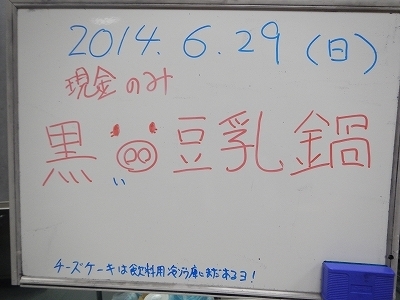 2014.6.29(日)
現金のみ
黒豆乳鍋
い
チーズケーキは飲料用冷ゾウ庫にまだあるヨ!